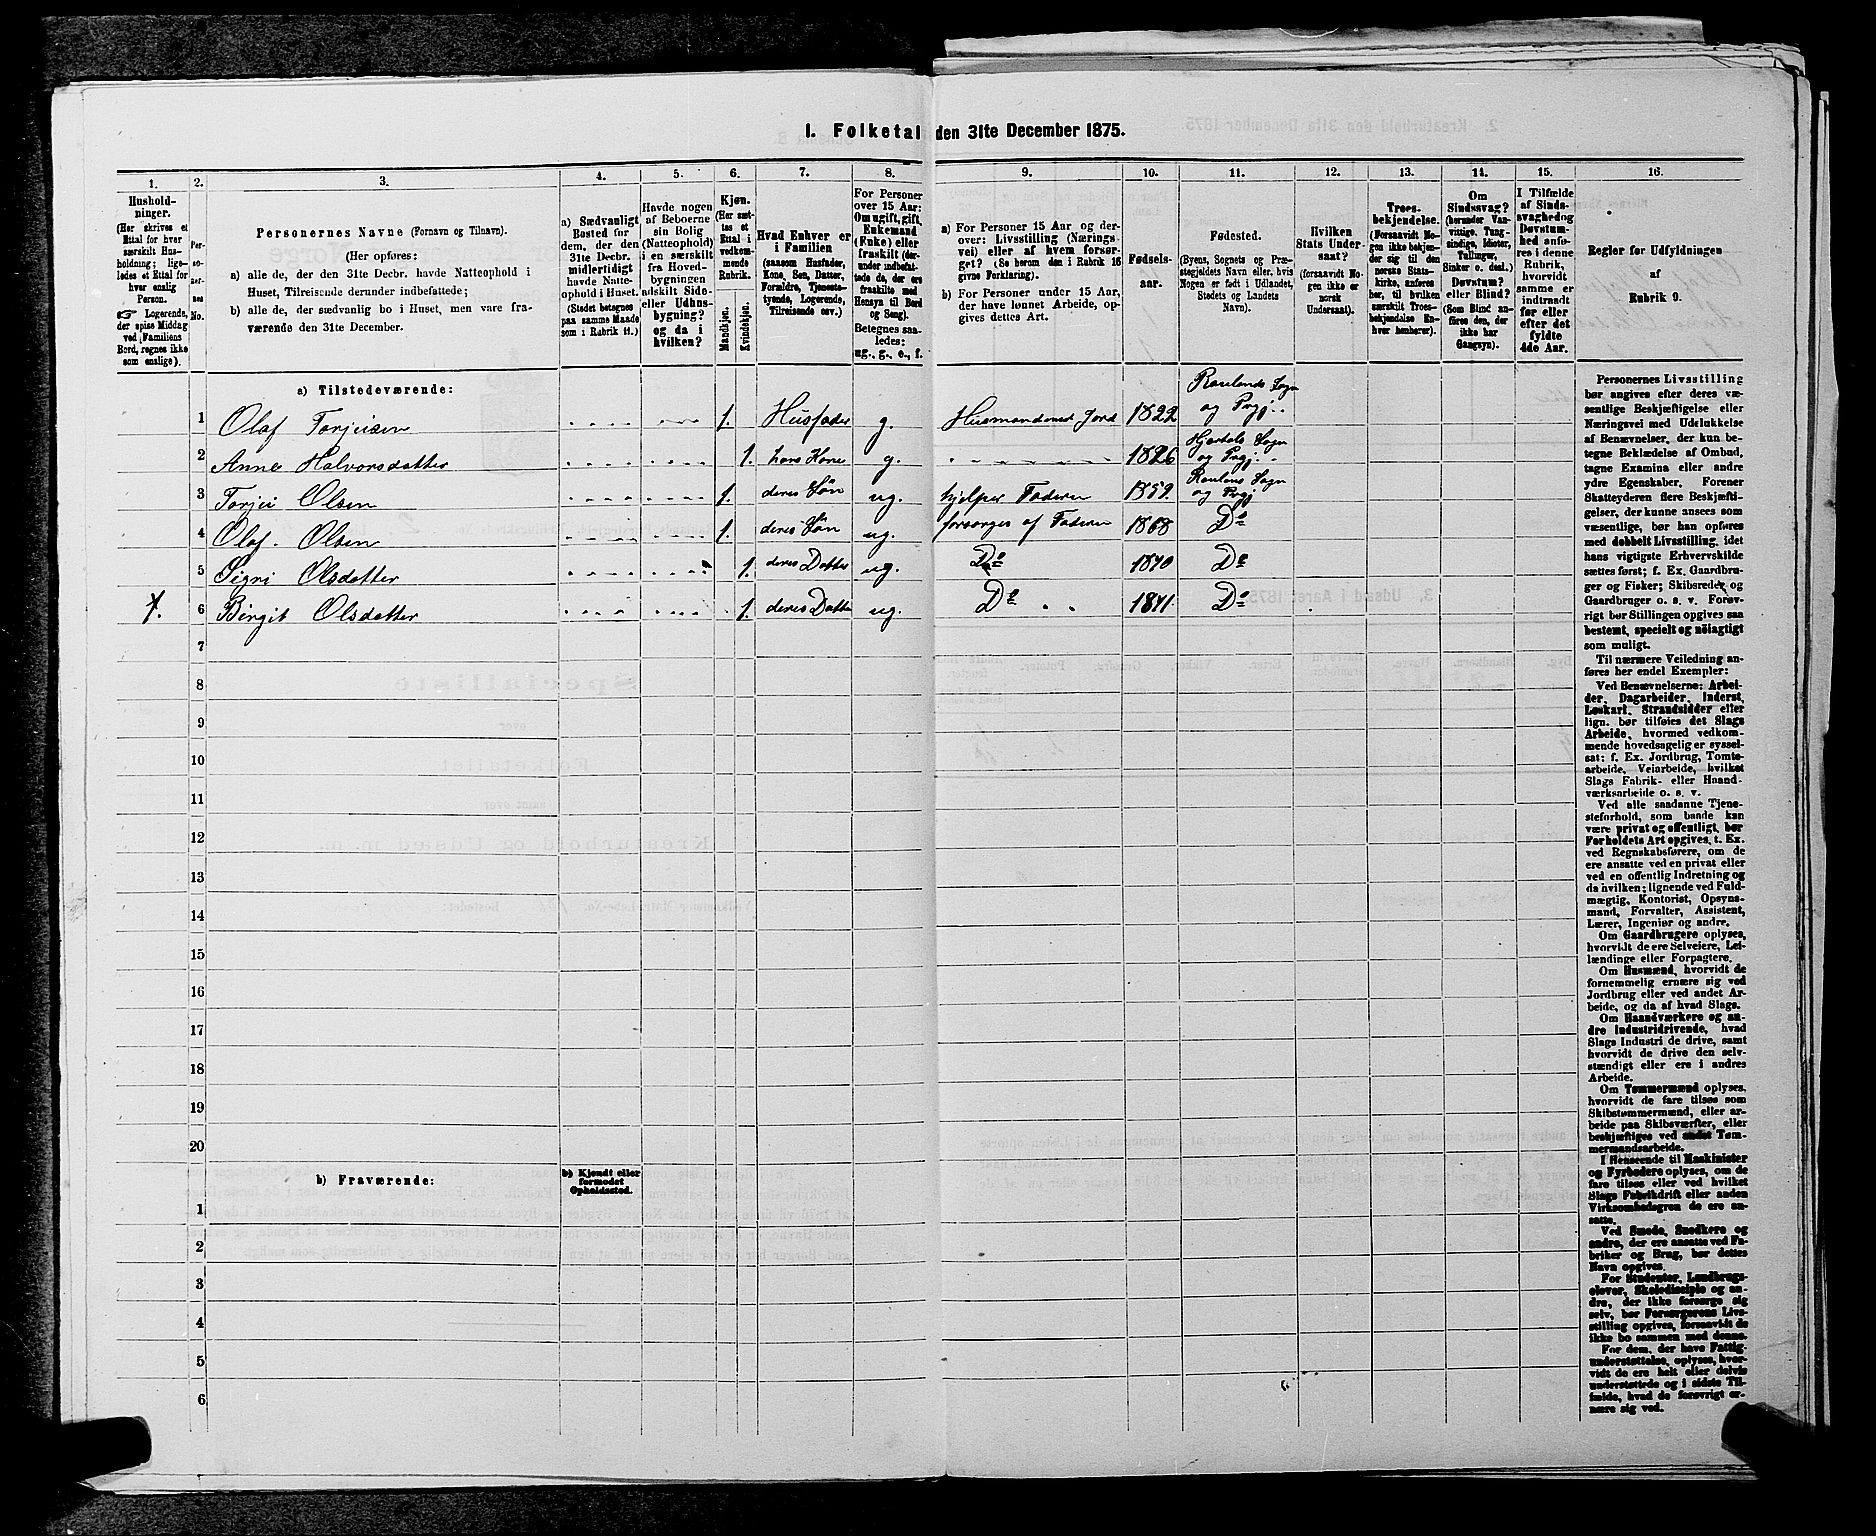 I. Folketal den 31te December 1875.
1.
Hushold-
ninger.
(Her skrives et
Ettal for hver
særskilt Hus-
holdning; lige-
ledes et Ettal for
hver enslig
Person.
☞ Logerende,
der spise Middag
ved Familiens
Bord, regnes ikke
som enslige).
2.
Per-
so-
ner-
nes
No.
3.
Personernes Navne (Fornavn og Tilnavn).
(Her opføres:
a) alle de, der den 31te Decbr. havde Natteophold i
Huset, Tilreisende derunder indbefattede;
b) alle de, der sædvanlig bo i Huset, men vare fra-
værende den 31te December.
4.
a) Sædvanligt
Bosted for
dem, der den
31te Decbr.
midlertidigt
havde Natte-
ophold i Huset.
(Stedet betegnes
paa samme Maade
som i Rubrik 11.)
5.
Havde nogen
af Beboerne
sin Bolig
(Natteophold)
i en særskilt
fra Hoved-
bygningen
adskilt Side-
eller Udhus-
bygning?
og da i
hvilken?
6.
Kjøn.
(Her sæt-
tes et
Ettal i
vedkom-
mende
Rubrik.
Mandkjøn.
Kvindekjøn.
7.
Hvad Enhver er
i Familien
(saasom Husfader,
Kone, Søn, Datter,
Forældre, Tjeneste-
tyende, Logerende,
Tilreisende osv.)
8.
For Personer
over 15 Aar:
Om ugift, gift,
Enkemand
(Enke) eller
fraskilt (der-
under indbefat-
tede de, der ere
fraskilte med
Hensyn til Bord
og Seng).
Betegnes saa-
ledes:
ug., g., e., f.
9.
a) For Personer 15 Aar og der-
over: Livsstilling (Nærings-
vei) eller af hvem forsør-
get? (Se herom den i Rubrik 16
givne Forklaring).
b) For Personer under 15 Aar,
der have lønnet Arbeide, op-
gives dettes Art.
10.
Fødsels-
aar.
11.
Fødested.
(Byens, Sognets og Præ-
stegjeldets Navn eller, hvis
Nogen er født i Udlandet,
Stedets og Landets
Navn).
12.
Hvilken
Stats Under-
saat?
(forsaavidt No-
gen ikke er
norsk
Undersaat).
13.
Troes-
bekjendelse.
(Forsaavidt No-
gen ikke bekjen-
der sig til den
norske Stats-
kirke, anføres
her, til hvilken
særskilt Troes-
bekjendelse En-
hver henhører).
14.
Om
Sindssvag?
(herunder Van-
vittige, Tung-
sindige, Idioter,
Tullinger,
Sinker o. desl.)
Døvstum?
eller Blind?
(Som Blind an-
føres den, der
ikke har
Gangsyn).
15.
I Tilfælde
af Sinds-
svaghed og
Døvstum-
hed anfø-
res i denne
Rubrik,
hvorvidt
samme er
indtraadt
før eller
efter det
fyldte
4de Aar.
16.
Regler for Udfyldningen
af
Rubrik 9.
a) Tilstedeværende:
1 Olaf Torjeisen 1. Husfader g. Husmand med Jord 1822 Raulands Sogn og Prgj.
2 Anne Halvorsdatter 1. hans Kone g. 1826 Hjertdals Sogn og Prgj.
3 Torjei Olsen 1. deres Søn ug. hjelper Faderen 1859. Raulens Sogn og Prgj
4 Olaf Olsen 1. deres Søn ug. forsørges af Faderen 1868 Do
5 Sigri Olsdatter 1. deres Datter ug. Do 1870 Do
1. 6 Birgit Olsdatter 1. deres Datter ug. Do 1871. Do
7
8
9
10
11
12
13
14
15
16
17
18
19
20
b) Fraværende:
b) Kjendt eller
formodet
Opholdssted.
1
2
3
4
5
6
Personernes Livsstilling
bør angives efter deres væ-
sentlige Beskjæftigelse eller
Næringsvei med Udelukkelse
af Benævnelser, der kun be-
tegne Beklædelse af Ombud,
tagne Examina eller andre
ydre Egenskaber. Forener
Skatteyderen flere Beskjæfti-
gelser, der kunne ansees som
væsentlige, bør han opføres
med dobbelt Livsstilling, idet
hans vigtigste Erhvervskilde
sættes først; f. Ex. Gaardbru-
ger og Fisker; Skibsreder og
Gaardbruger o. s. v. Forøv-
rigt bør Stillingen opgives saa
bestemt, specielt og nøiagtigt
som muligt.
Til nærmere Veiledning an-
føres her endel Exempler:
Ved Benævnelserne: Arbei-
der, Dagarbeider, Inderst,
Løskarl, Strandsidder eller
lign. bør tilføies det Slags
Arbeide, hvormed vedkom-
mende hovedsagelig er syssel-
sat: f. Ex. Jordbrug, Tomte-
arbeide, Veiarbeide, hvilket
Slags Fabrik- eller Haand-
værksarbeide o. s. v.
Ved alle saadanne Tjene-
steforhold, som baade kan
være privat og offentligt, bør
Forholdets Art opgives, t. Ex.
ved Regnskabsførere, om de
ere ansatte ved en privat eller
ved en offentlig Indretning og
da hvilken; lignende ved Fuld-
mægtig, Kontorist, Opsyns-
mand, Forvalter, Assistent,
Lærer, Ingeniør og andre.
Om Gaardbrugere oplyses,
hvorvidt de ere Selveiere, Lei-
lændinge eller Forpagtere.
Om Husmænd, hvorvidt de
fornemmelig ernære sig ved
Jordbrug eller ved andet Ar-
beide, og da af hvad Slags.
Om Haandværkere og an-
dre Industridrivende, hvad
Slags Industri de drive, samt
hvorvidt de drive den selv-
stændigt eller ere i andres
Arbeide.
Om Tømmermænd oplyses,
hvorvidt de fare tilsøs som
Skibstømmermænd, eller ar-
beide paa Skibsværfter, eller
beskjæftiges ved andet Tøm-
mermandsarbeide.
I Henseende til Maskinister
og Fyrbødere oplyses, om de
fare tilsøs eller ved hvilket
Slags Fabrikdrift eller anden
Virksomhedsgren de ere an-
satte.
Ved Smede, Snedkere og
andre, der ere ansatte ved Fa-
briker og Brug, bør dettes
Navn opgives.
For Studenter, Landbrugs-
elever, Skoledisciple og an-
dre, der ikke forsørge sig
selv, bør Forsørgerens Livs-
stilling opgives, forsaavidt de
ikke bo sammen med denne.
For dem, der have Fattig-
understøttelse, oplyses, hvor-
vidt de ere helt eller delvis
understøttede og i sidste Til-
fælde, hvad de forøvrigt er-
nære sig ved.